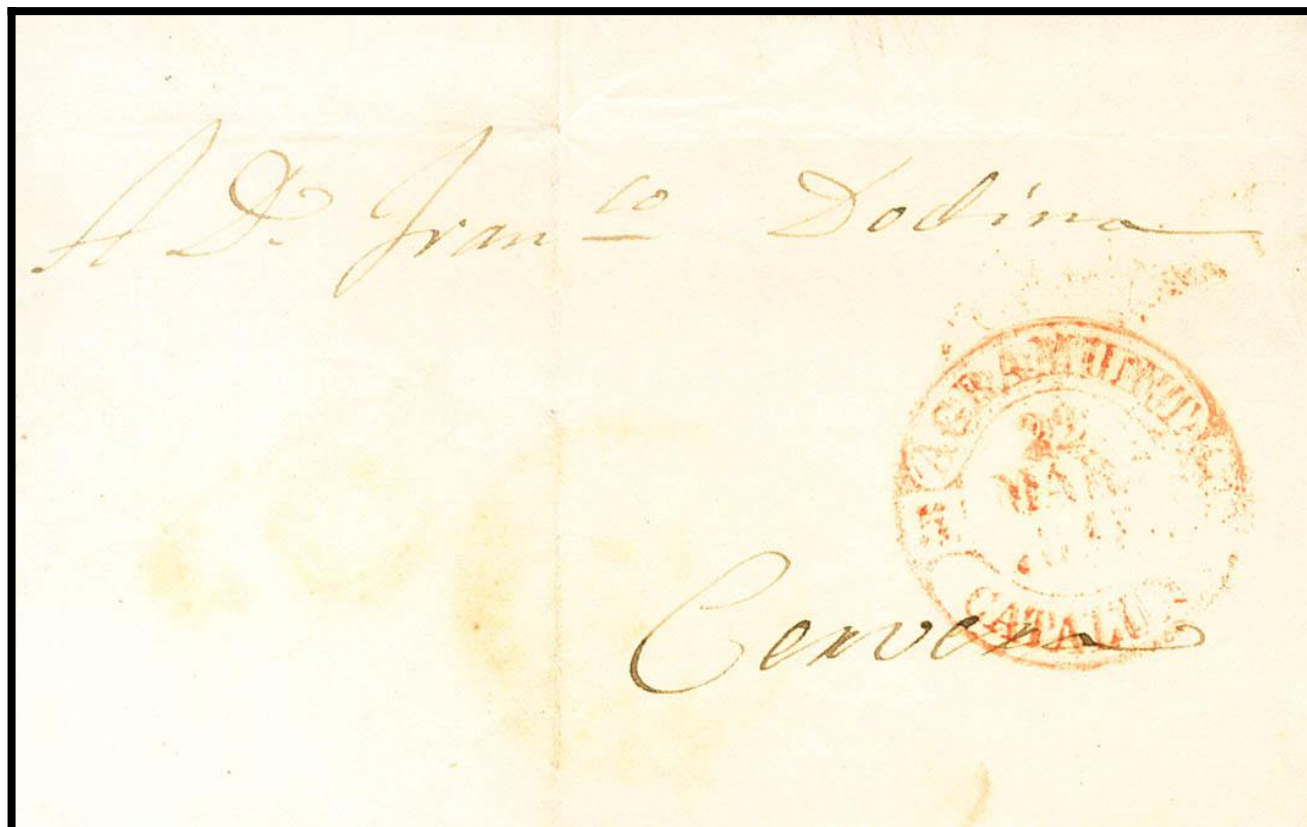 A Dn. Franco
AGRAMUNT
22
MAR
CATALUÑ
Cervera